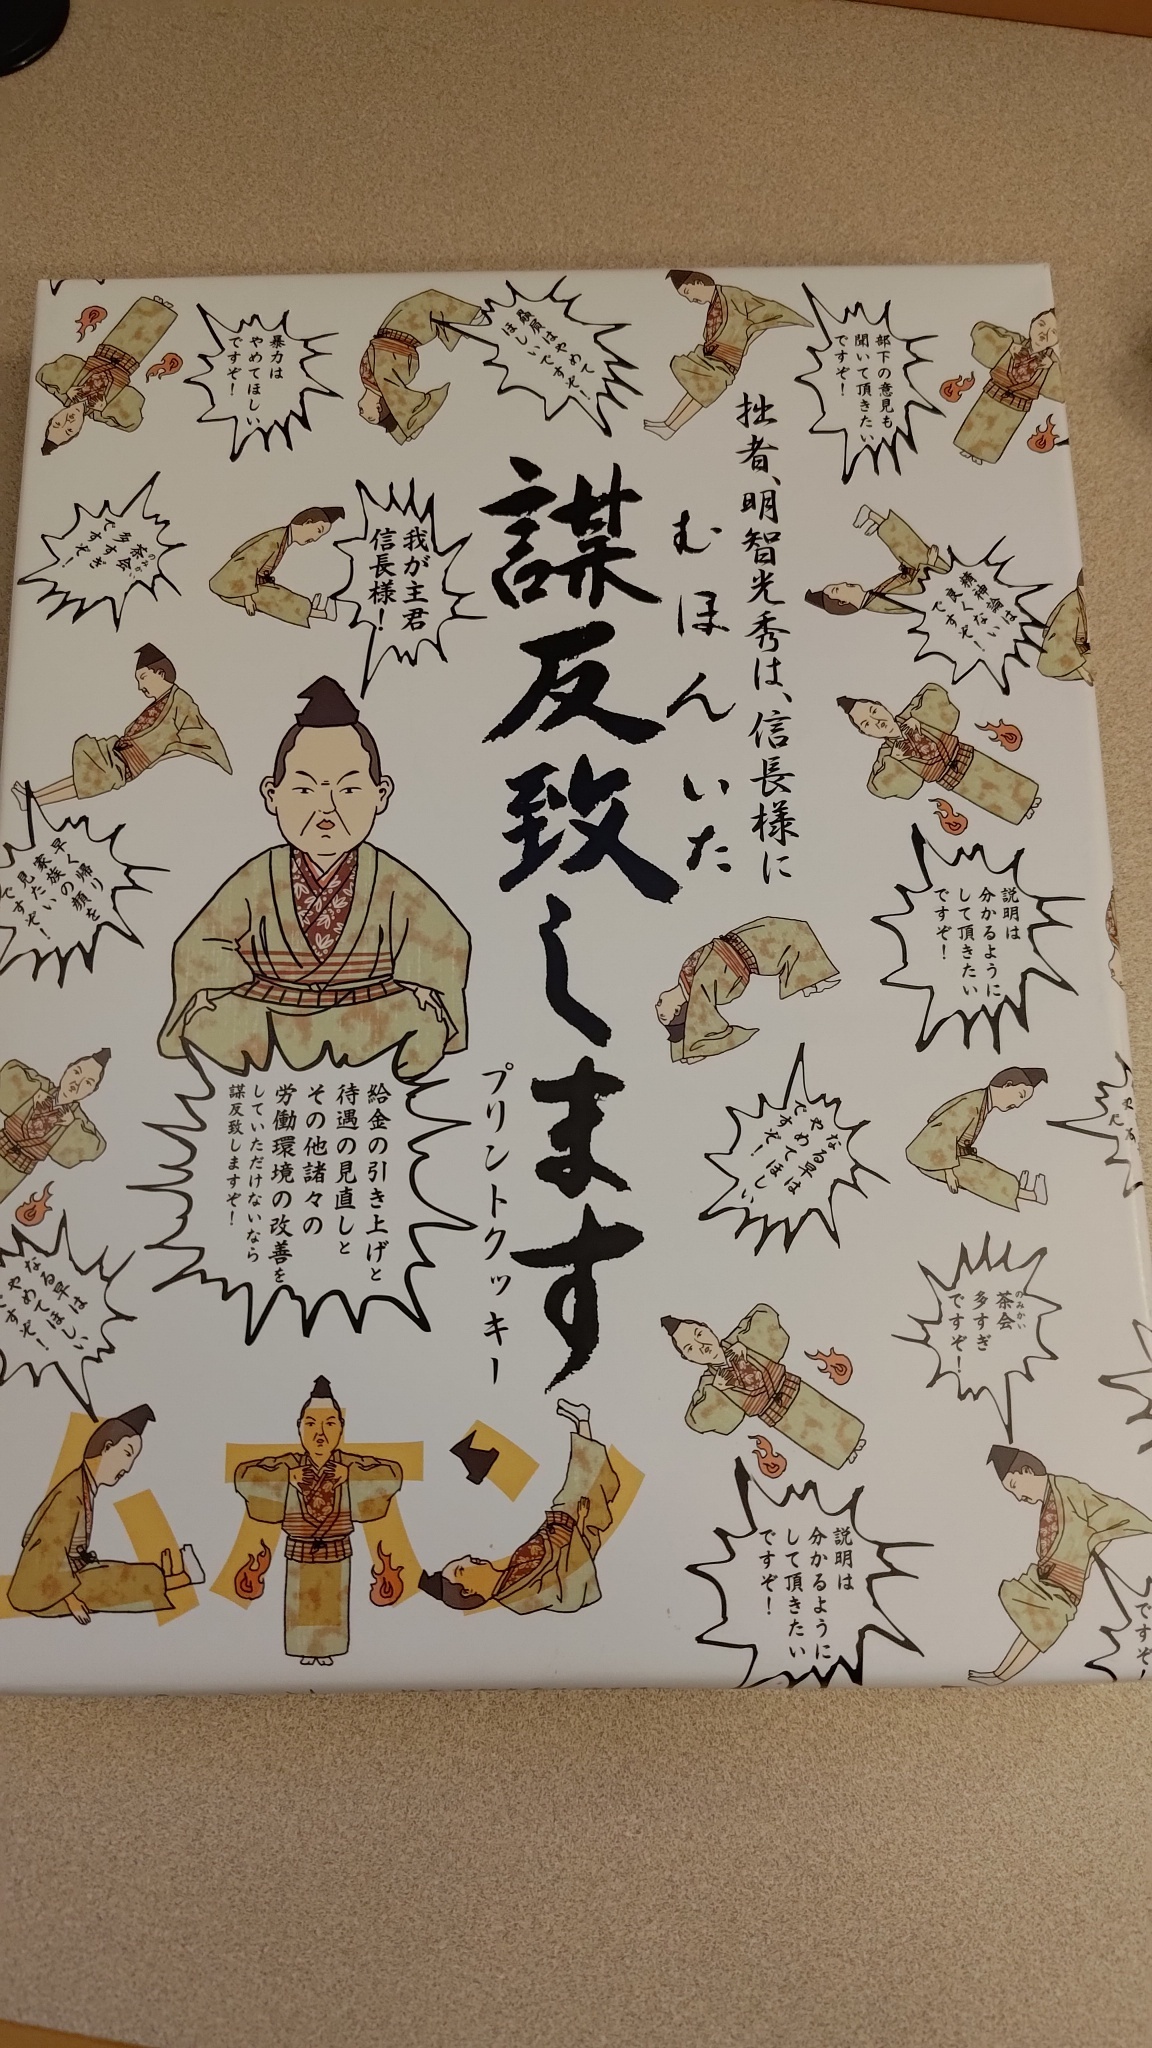 拙者、明智光秀は、信長様に
むほんいた
謀反致します
プリントクッキー
我が主君
信長様！
給金の引き上げと
待遇の見直しと
その他諸々の
労働環境の改善を
していただけないなら
謀反致しますぞ！
部下の意見も
聞いて頂きたい
ですぞ！
贔屓はやめて
ほしいですぞ！
暴力は
やめてほしい
ですぞ！
精神論は
良くない
ですぞ！
のみかい
茶会
多すぎ
ですぞ！
早く帰り
家族の顔を
見たい
ですぞ！
説明は
分かるように
して頂きたい
ですぞ！
なる早は
やめてほしい
ですぞ！
のみかい
茶会
多すぎ
ですぞ！
なる早は
やめてほしい
ですぞ！
説明は
分かるように
して頂きたい
ですぞ！
ですぞ！
ムホン